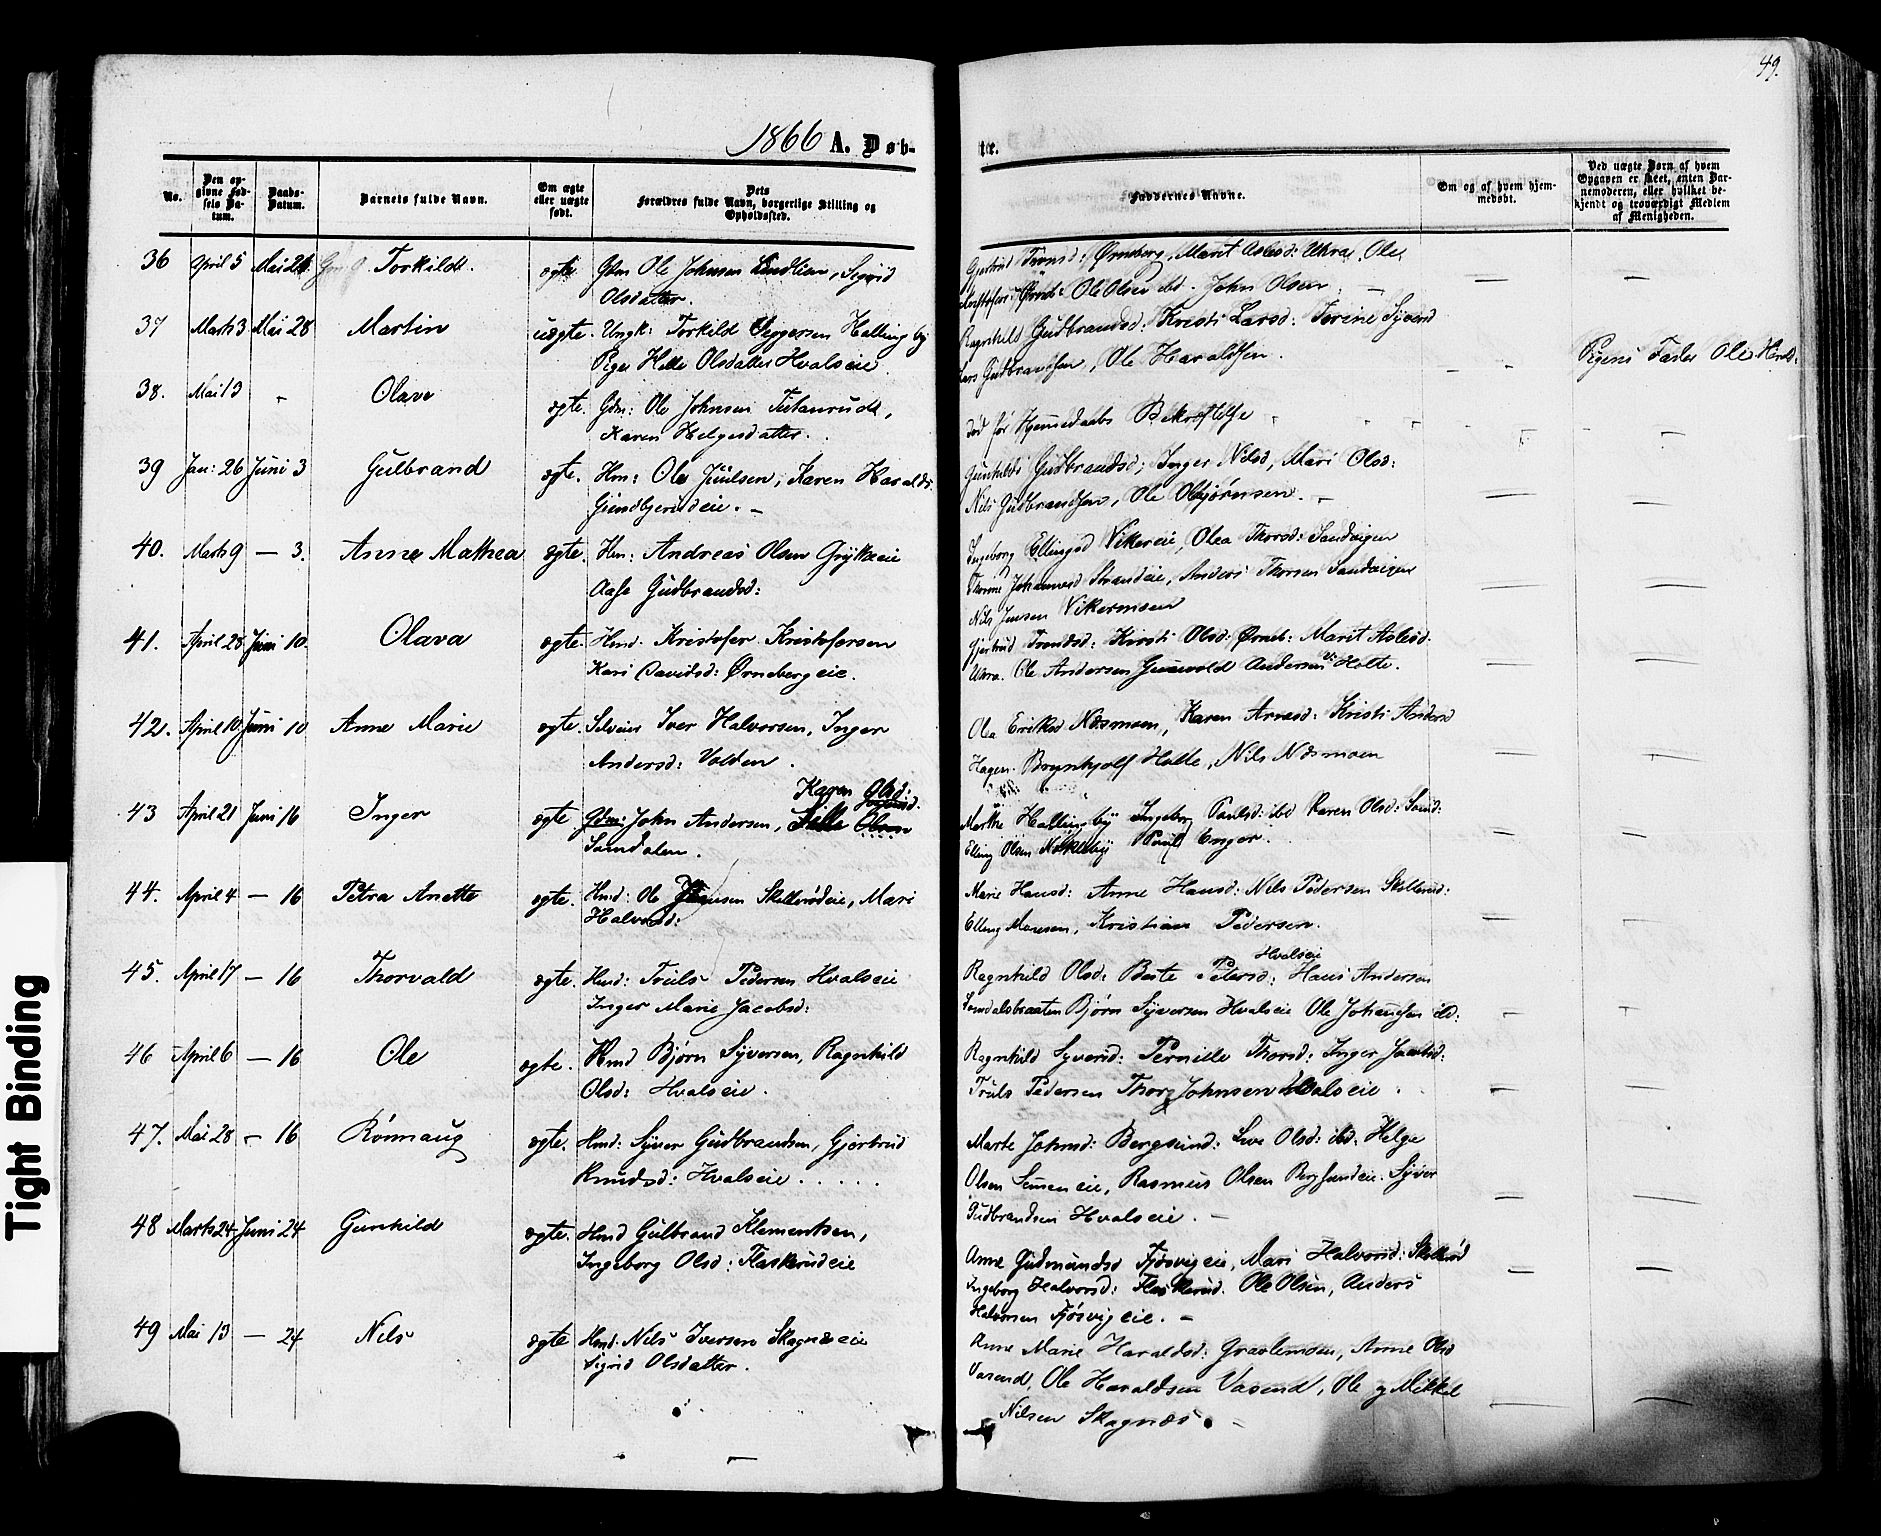 49.
1866 A. Døb-
te.
No.
Den op-
givne Fød-
sels Da-
tum.
Daabs-
Datum.
Barnets fulde Navn.
Om ægte
eller uægte
født.
Dets
Forældres fulde Navn, borgerlige Stilling og
Opholdssted.
Faddernes Navne.
Om og af hvem hjem-
medøbt.
Ved uægte Barn af hvem
Opgaven er skeet, enten Bar-
nemoderen, eller hvilket be-
kjendt og troværdigt Medlem
af Menigheden.
36 April 5 Mai 21 Torkild. ægte Gdm Ole Johnsen Lindlien, Sigrid
Olsdatter.
Gjertrud Ørneberg, Marit Aslesd: Uhra, Ole
Ole Olsen ibd. John Olsen. —
37 Marts 3 Mai 28 Martin uægte. Ungk: Torkild Hallingby
Pige Helle Olsdatter Hvalseie
Ragnhild Gudbrandsd: Kristi Larsd: Torine Syversd
Lars Gudbrandsen, Ole Haraldsen.
Pigens Fader Ole
38. Mai 13 - Olave ægte. Gdm: Ole Johnsen
Karen Helgesdatter.
død før Hjemmedaabs Bekræftelse
39 Jan: 26 Juni 3 Gulbrand ægte. Hm: Ole Juulsen, Karen Haralds:
Gunhild Gudbrandsd; Inger Nilsd, Mari Olsd:
Nils Gudbrandsen, Ole Obijørnsen. —
40. Marts 9 — 3. Anne Mathea ægte. Hm: Andreas Olsen Grytkeeie
Aase Gudbrandsd:
Ingeborg Ellingsd Vikereie, Olea Thorsd: Sandvigen
Johannesd Strandeie, Anders Thorsen Sandvigen
Nils Jensen Vikermoen
41. April 28 Juni 10. Olava ægte. Hmd: Kristofer Kristofersen
Kari Davidsd: Ørnebergeie.
Gjertrud Trondsd: Kirsti Olsd: Ørneb: Marit Aslesd.
Uhra. Ole Andersen Gunvold Andersen Holte.
42. April 10 Juni 10 Anne Marie ægte. Selveier Iver Halvorsen, Inger
Andersd: Volden.
Olea Eriksd Næsmoen, Karen Arnesd: Kristi Andersd
Hagen. Brynhjolf Holte, Nils Næsmoen
Karen Olsd:
43 April 21 Juni 16 Inger ægte Gdm: John Andersen,
Samdalen.
Marthe Hallingby Ingeborg Paulsd: ibd Karen Olsd: Samd:
Elling Olsen Paul Enger.
44. April 4 — 16 Petra Anette ægte. Hmd: Ole Skollerødeie, Mari
Halvorsd:
Marie Hansd: Anne Hansd: Nils Pedersen Skollerud:
Elling Monsen, Kristian Pedersen.
45. April 17 — 16 Thorvald ægte. Hmd: Truls Pedersen Hvalseie
Inger Marie Jacobsd:
Hvalseie
Ragnhild Olsd: Berte Petersd: Hans Andersen
Samdalsbraaten Bjørn Syversen Hvalseie Ole Johannsen ibd:
46 April 6 — 16 Ole ægte. Hmd Bjørn Syversen, Ragnhild
Olsd: Hvalseie.
Ragnhild Syversd: Pernille Thorsd: Inger Jacobsd:
Truls Pedersen Thor Johnsen Hvalseie.
47. Mai 28 — 16 Rønnaug ægte. Hmd: Syver Gudbrandsen, Gjertrud
Knudsd: Hvalseie.....
Marte Johnsd: Bergsund: Live Olsd: ibd: Helge
Olsen Semeneie, Rasmus Olsen Bergsundeie. Syver
Gudbrandsen Hvalseie. —
48 Marts 24 Juni 24 Gunhild ægte. Hmd Gulbrand Klementsen,
Ingeborg Olsd: Flaskerudeie
Anne Gudmundsd Fjøsvigeie, Mari Halvorsd: Skollerød
Ingeborg Halvorsd: Flaskerud. Ole Olsen, Anders
Halvorsen Fjøsvigeie. —
49 Mai 13 — 24 Nils ægte Hmd: Nils Iversen Skagnæseie
Sigrid Olsdatter.
Anne Marie Haraldsd: Gravlemoen, Anne Olsd
Vasend, Ole Haraldsen Vasend, Ole og Mikkel
Nilsen Skagnæs. —
Tight Binding